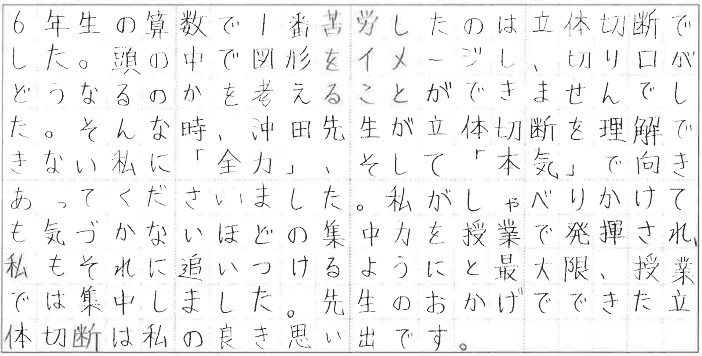 6年生の算数で1番苦労したのは立体切断で
した。頭の中で図形をイメージし、切り口が
どうなるのかを考えることができませんでし
た。そんな時、沖田先生が立体切断を理解で
きない私に「全力」、そして「本気」で向き
あってくださいました。私がしゃべりかけて
も気づかないほどの集中力を授業で発揮され、
私もそれに追いつけるようにと最大限、授業
では集中しました。先生のおかげでできた立
体切断は私の良き思い出です。